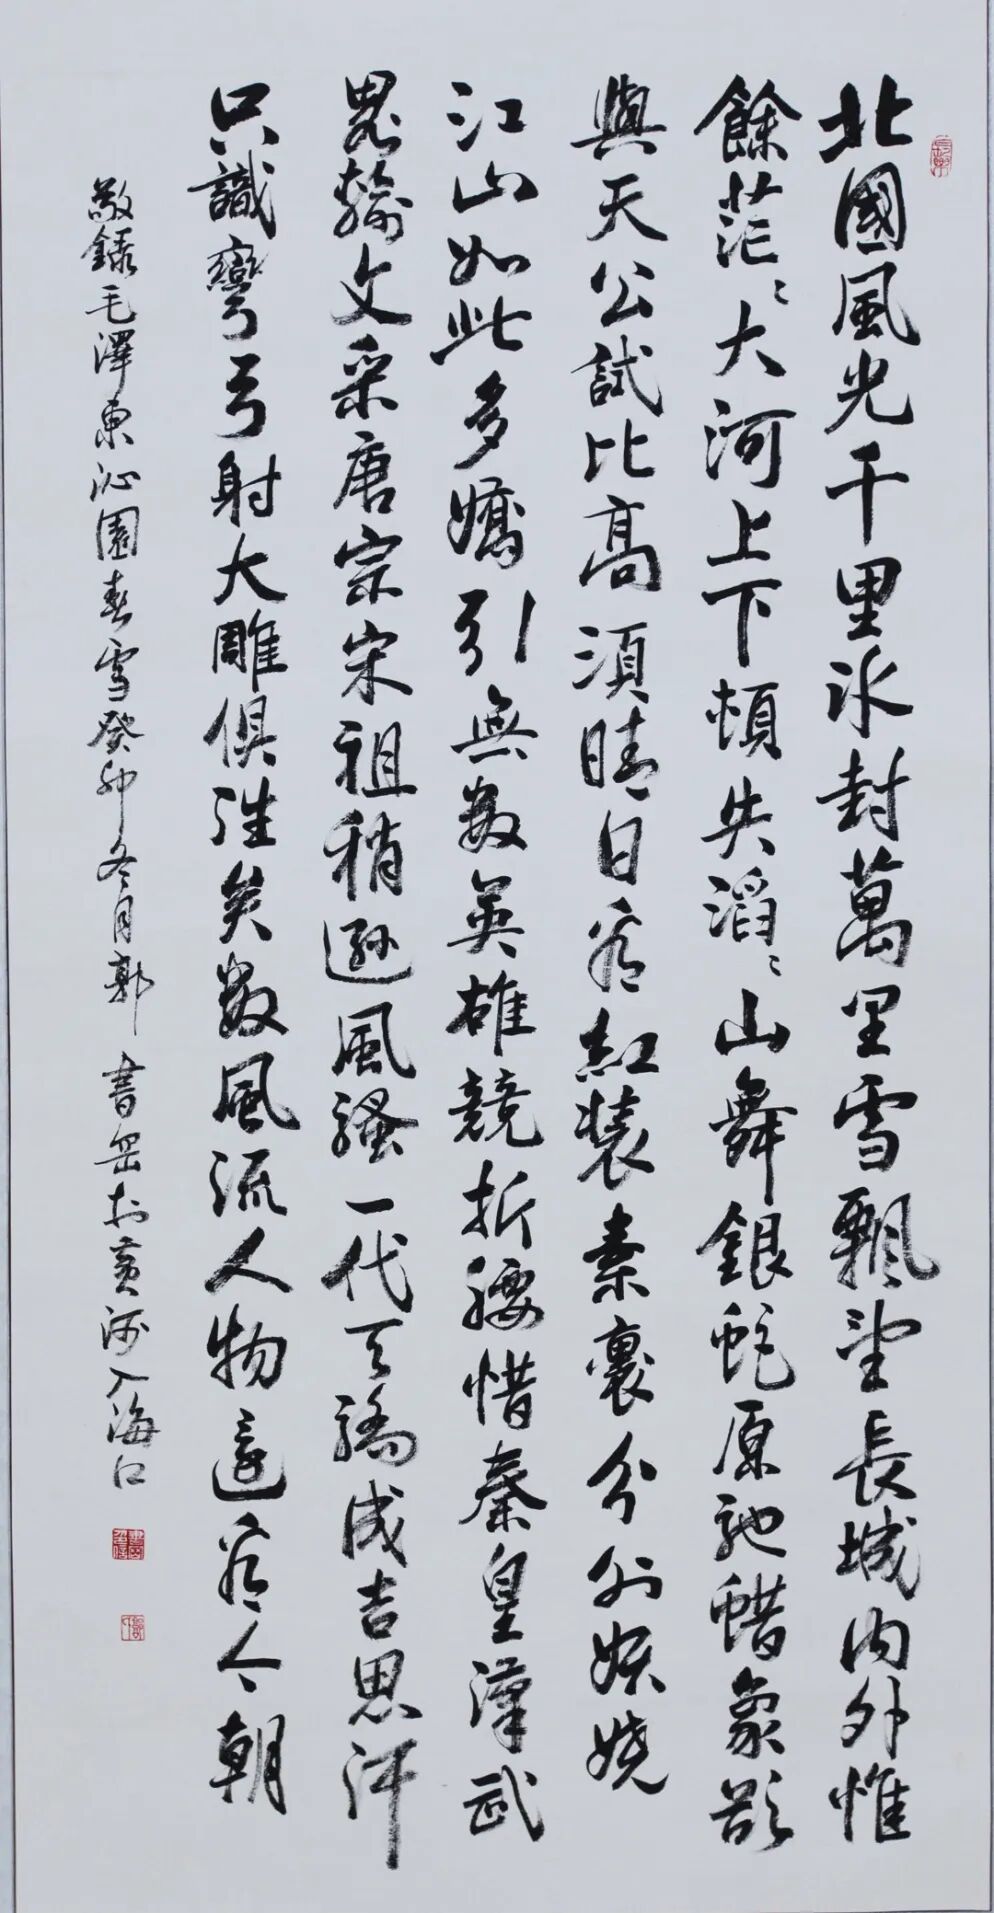 北國風光千里冰封萬里雪飄望長城內外惟
餘茫〻大河上下頓失滔〻山舞銀蛇原馳蜡象欲
與天公試比高須晴日看紅裝素裹分外妖嬈
江山如此多嬌引無數英雄競折腰惜秦皇漢武
畧輸文采唐宗宋祖稍遜風騷一代天驕成吉思汗
只識彎弓射大雕俱往矣數風流人物還看今朝
敬錄毛澤東沁園春雪癸卯冬月郭 書岳於黃河入海口